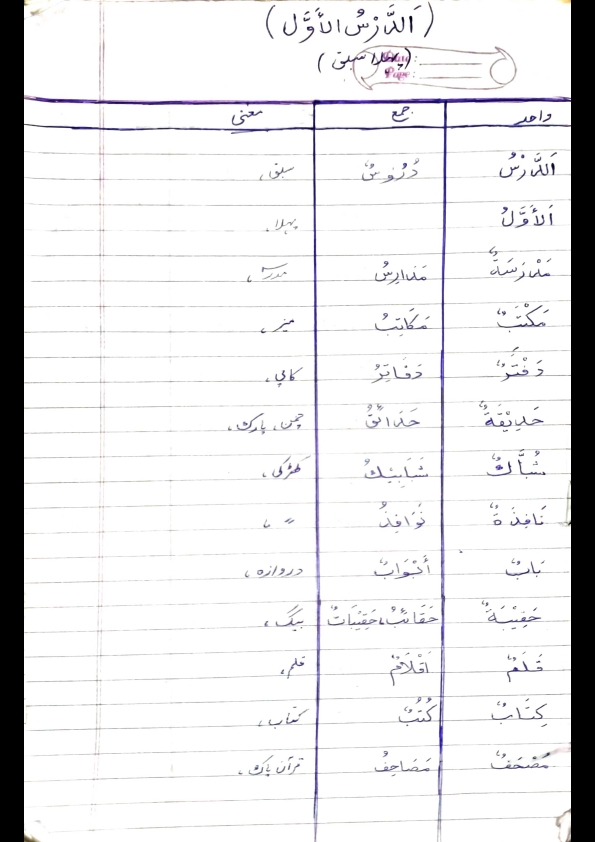 (اَلدَّرْسُ الأَوَّل)
(پہلا سبق)
Date:
Page:
واحد جمع معنیٰ
اَلدَّرْسُ دُرُوسٌ سبق،
اَلأَوَّلُ پہلا،
مَدْرَسَةٌ مَدَارِسُ مدرسہ،
مَكْتَبٌ مَكَاتِبُ میز،
دَفْتَرٌ دَفَاتِرُ کاپی،
حَدِيْقَةٌ حَدَائِقُ چمن، پارک،
شُبَّاكٌ شَبَابِيْكُ کھڑکی،
نَافِذَةٌ نَوَافِذُ 〃 ،
بَابٌ أَبْوَابٌ دروازہ،
حَقِيْبَةٌ حَقَائِبُ، حَقِيْبَاتٌ بیگ،
قَلَمٌ اَقْلَامٌ قلم،
كِتَابٌ كُتُبٌ کتاب،
مُصْحَفٌ مَصَاحِفُ قرآن پاک،